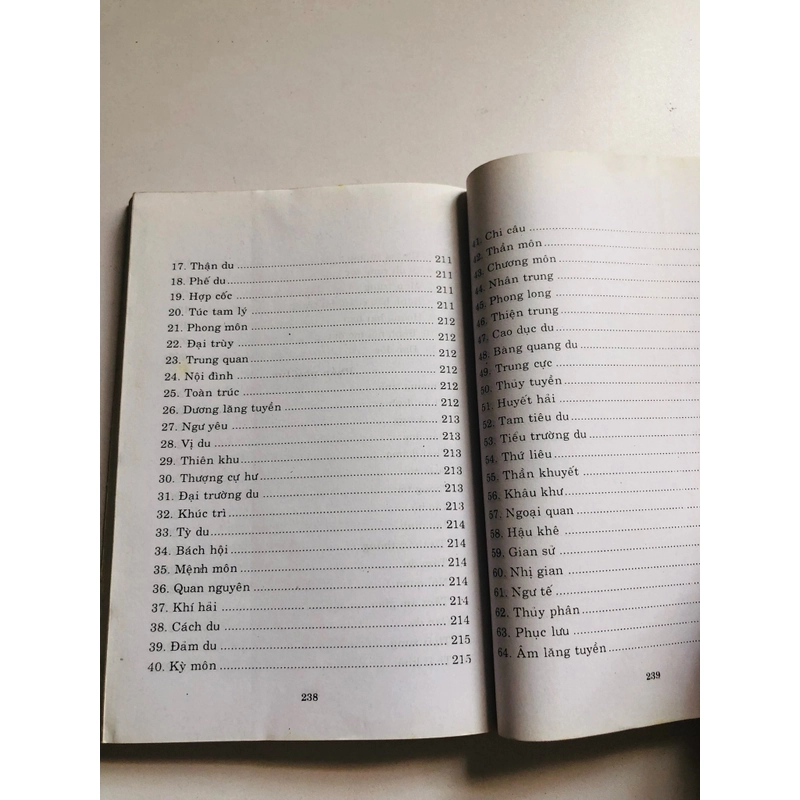 17. Thận du 211
18. Phế du 211
19. Hợp cốc 211
20. Túc tam lý 211
21. Phong môn 212
22. Đại trùy 212
23. Trung quan 212
24. Nội đình 212
25. Toàn trúc 212
26. Dương lăng tuyền 212
27. Ngư yêu 213
28. Vị du 213
29. Thiên khu 213
30. Thượng cự hư 213
31. Đại trường du 213
32. Khúc trì 213
33. Tỳ du 214
34. Bách hội 214
35. Mệnh môn 214
36. Quan nguyên 214
37. Khí hải 214
38. Cách du 214
39. Đảm du 215
40. Kỳ môn 215
238
41. Chi câu
42. Thần môn
43. Chương môn
44. Nhân trung
45. Phong long
46. Thiện trung
47. Cao dục du
48. Bàng quang du
49. Trung cực
50. Thủy tuyền
51. Huyết hải
52. Tam tiêu du
53. Tiểu trường du
54. Thứ liêu
55. Thần khuyết
56. Khâu khư
57. Ngoại quan
58. Hậu khê
59. Gian sử
60. Nhị gian
61. Ngư tế
62. Thủy phân
63. Phục lưu
64. Âm lăng tuyền
239